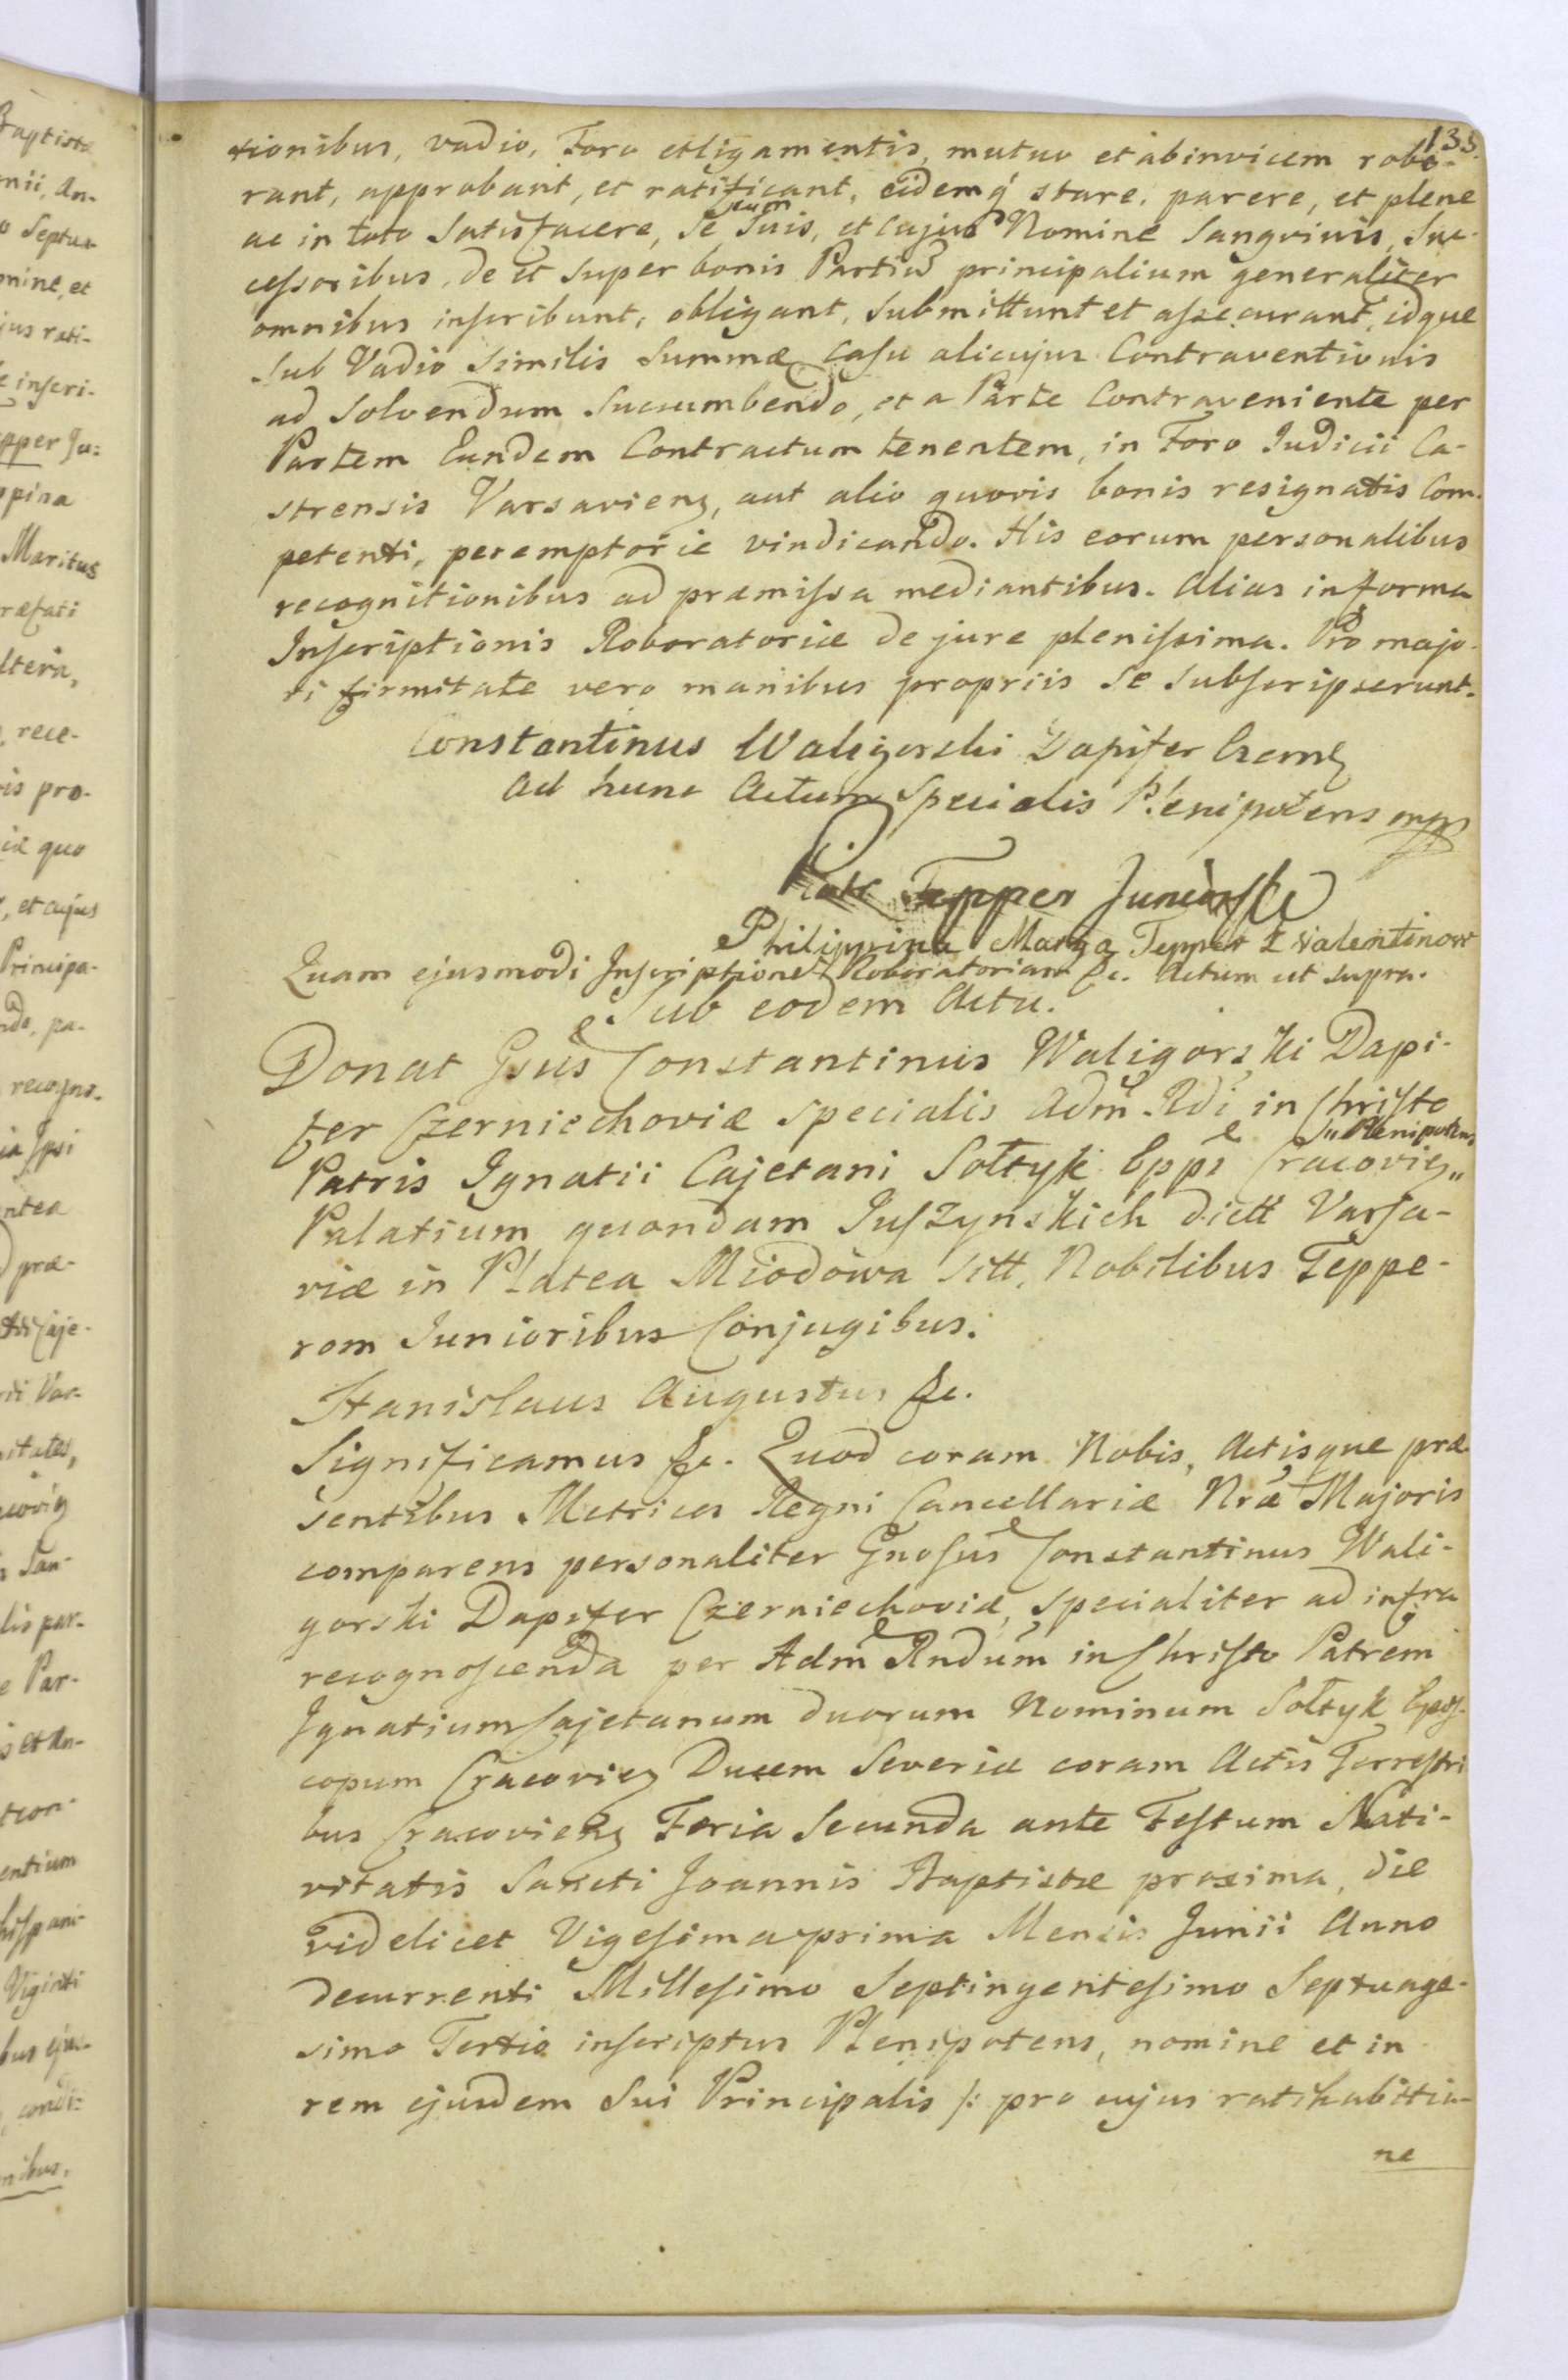 135.
tionibus, vadio, Foro et ligamentis, mutuo et ab invicem robo-
rant, approbant, et ratificant, eidemq́ stare, parere, et plene
ac in toto Satisfacere, se cum Suis, et cujus Nomine Sangvinis, Suc-
cessoribus, de et super bonis Partiū principalium generaliter
omnibus inscribunt, obligant, submittunt et assecurant, idque
sub Vadio similis Summæ, casu alicujus Contraventionis
ad solvendum Succumbendo, et a Parte Contraveniente per
Partem Eundem Contractum tenentem, in Foro Judicii Ca-
strensis Varsavieng, aut alio quovis bonis resignatis Com-
petenti, peremptorie vindicando. His eorum personalibus
recognitionibus ad præmissa mediantibus. Alias in forma
Inscriptionis Roboratoriæ de jure plenissima. Pro majo-
ri firmitate vero manibus propriis se subscripserunt.
Constantinus Waligorski Dapifer Czerng
ad hunc Actum Specialis Plenipotens mpp
Tepper Junior
Philippina Tepper Z Valentinow
Quam ejusmodi Inscriptionē Roboratoriam &c. Actum ut supra.
Sub eodem Actu.
Donat Gsus Constantinus Waligorski Dapi-
fer Czerniechoviæ specialis Adm̄ Rdi in Christo
Plenipotens
Patris Ignatii Cajetani Sołtyk Eppi Cracovieng
Palatium quondam Juszynskich dictt Varsa-
viæ in Platea Miodowa sitt, Nobilibus Teppe-
rom Junioribus Conjugibus.
Stanislaus Augustus &c.
Significamus &c. Quod coram Nobis, Actisque præ-
sentibus Metrices Regni Cancellariæ Nræ Majoris
comparens personaliter Gnosus Constantinus Wali-
gorski Dapifer Czerniechoviæ, specialiter ad infra
recognoscenda per Adm̄ Rndum in Christo Patrem
Ignatium Cajetanum duorum Nominum Sołtyk Epis-
copum Cracovieng Ducem Severiæ coram Actis Terrestri
bus Cracovieng Feria Secunda ante Festum Nati-
vitatis Sancti Joannis Baptistæ proxima, die
videlicet Vigesima prima Mensis Junii Anno
decurrenti Millesimo Septingentesimo Septuage-
simo Tertio inscriptus Plenipotens, nomine et in
rem ejusdem Sui Principalis /: pro cujus ratihabitio-
ne